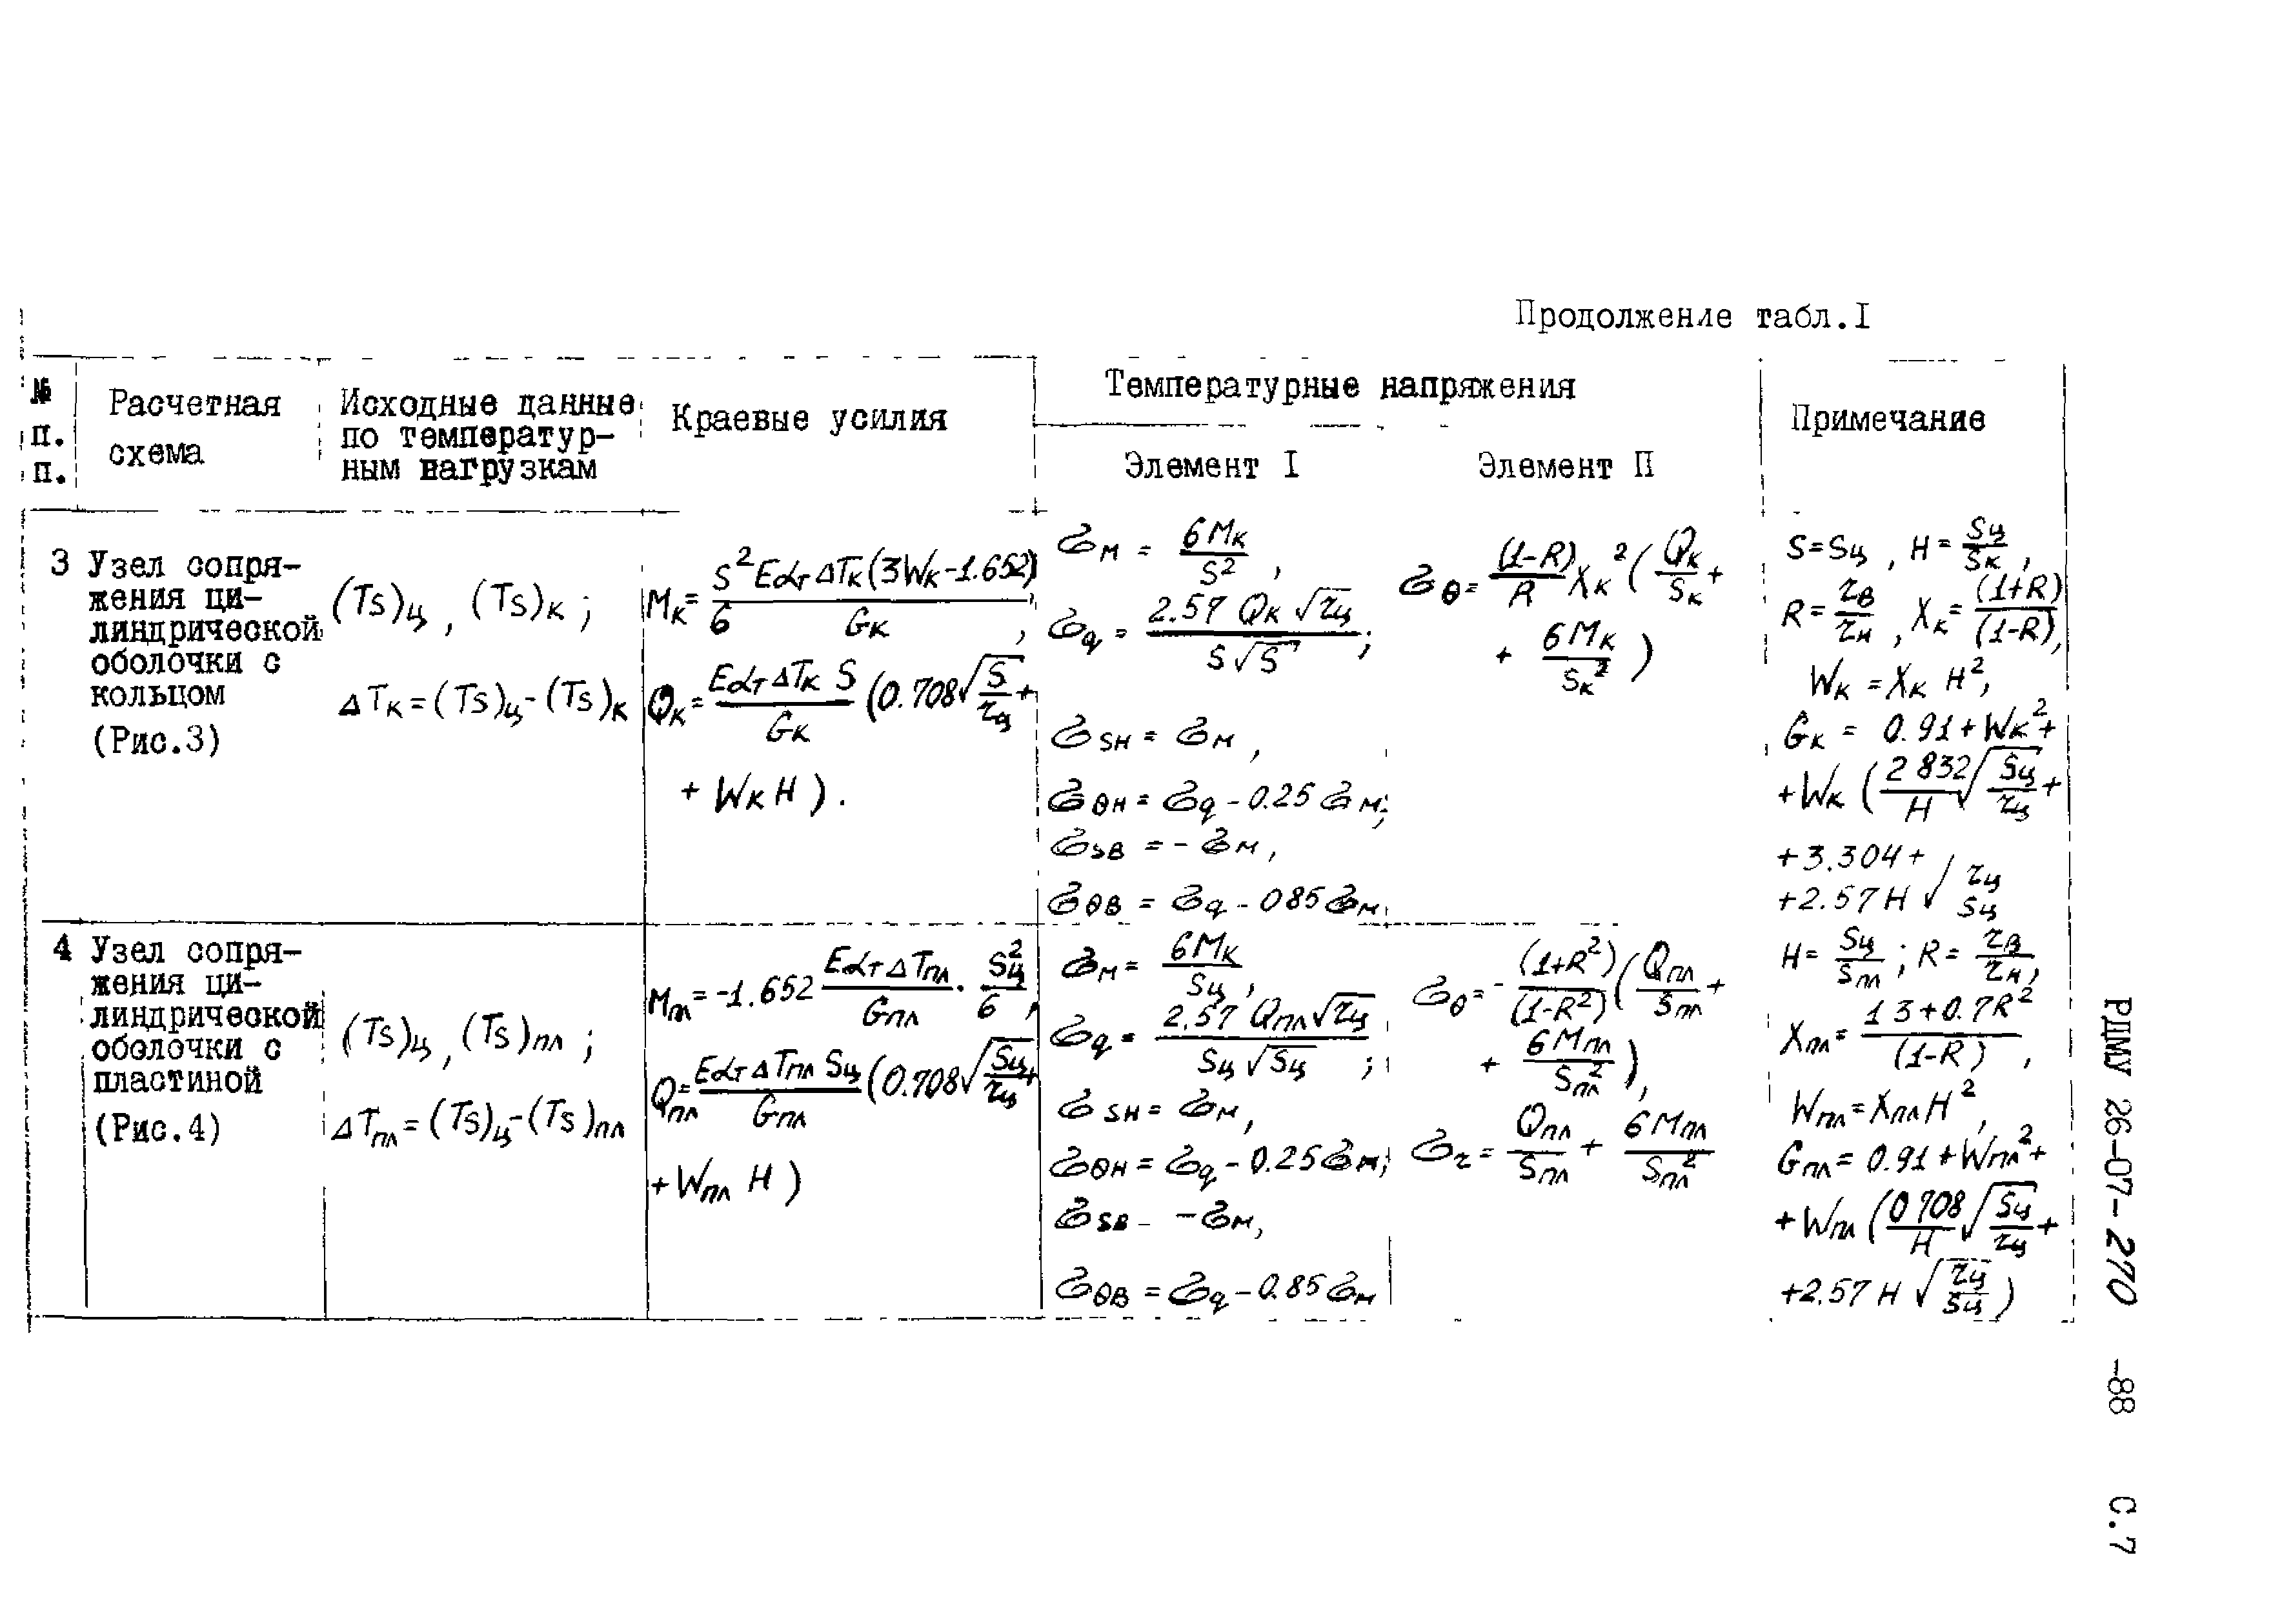 Продолжение табл.I
№ п. п.
Расчетная схема
Исходные данные по температур-
ным нагрузкам
Краевые усилия
Температурные напряжения
Элемент I
Элемент П
Примечание
3 Узел сопря-
жения ци-
линдрической
оболочки с
кольцом
(Рис.3)
(Ts)ц , (Ts)к ;
ΔTк = (Ts)ц - (Ts)к
Mк = S²EαтΔTк(3Wк-1.652) / 6 Gк ,
Qк = EαтΔTк S / Gк (0.708√(S/rц) +
+ Wк H ) .
σм = 6Mк / S² ,
σq = 2.57 Qк √rц / S√S ;
σsн = σм ,
σθн = σq - 0.25 σм;
σsв = - σм ,
σθв = σq - 085 σм,
σθ = (1-R)/R Xк² ( Qк/Sк +
+ 6Mк/Sк² )
S=Sц , H = Sц/Sк ,
R = rв/rн , Xк = (1+R)/(1-R),
Wк = Xк H²,
Gк = 0.91 + Wк² +
+ Wк ( 2 832/H √(Sц/rц) +
+3.304 +
+2.57 H √ rц/Sц
4 Узел сопря-
жения ци-
линдрической
оболочки с
пластиной
(Рис.4)
(Ts)ц , (Ts)пл ;
ΔTпл = (Ts)ц - (Ts)пл
Mпл = -1.652 EαтΔTпл / Gпл · Sц²/6 ,
Qпл = EαтΔTпл Sц / Gпл (0.708√(Sц/rц) +
+ Wпл H )
σм = 6Mк / Sц ,
σq = 2.57 Qпл√rц / Sц√Sц ;
σsн = σм ,
σθн = σq - 0.25σм;
σsв - -σм,
σθв = σq - 0.85 σм
σθ = - (1+R²)/(1-R²) ( Qпл/Sпл +
+ 6Mпл/Sпл² ),
σr = Qпл/Sпл + 6Mпл/Sпл²
H = Sц/Sпл ; R = rв/rн,
Xпл = 1 3+0.7R² / (1-R) ,
Wпл = Xпл H² ,
Gпл = 0.91 + Wпл² +
+ Wпл ( 0 708/H √(Sц/rц) +
+2.57 H √(rц/Sц) )
РДМУ 26-07-270 -88 С.7